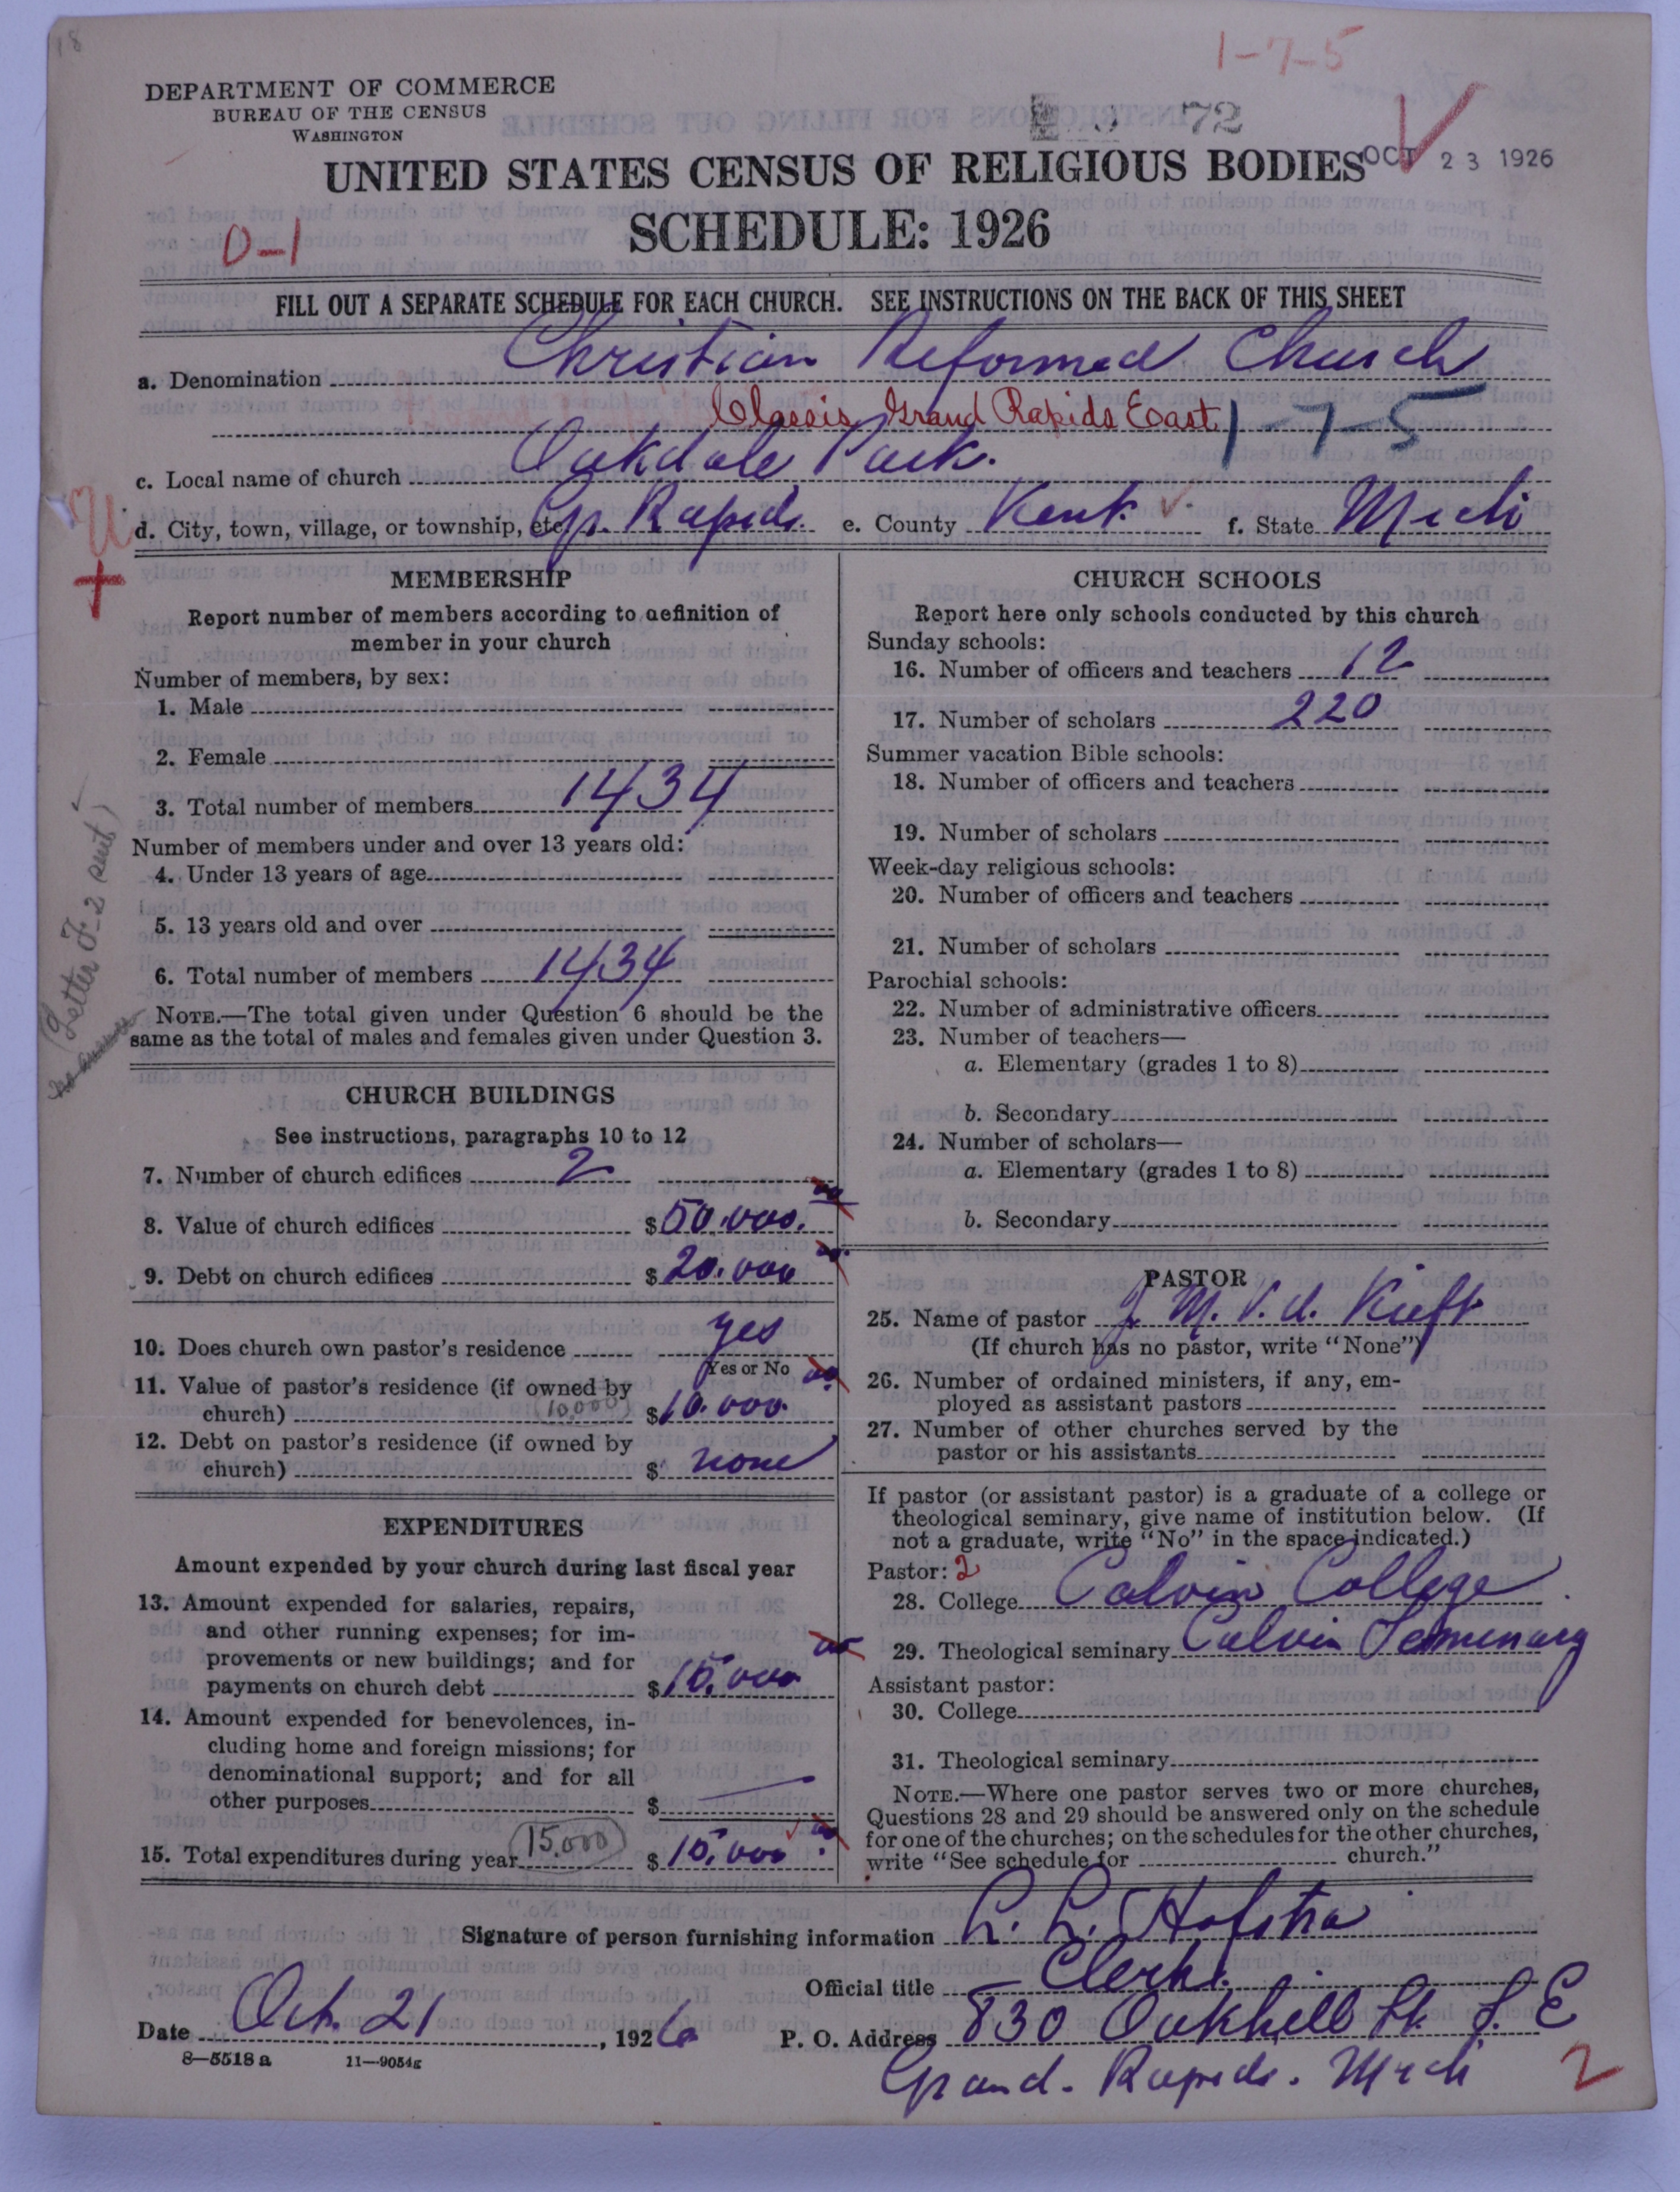 18
1-7-5
DEPARTMENT OF COMMERCE
BUREAU OF THE CENSUS
WASHINGTON
72
OCT 23 1926
UNITED STATES CENSUS OF RELIGIOUS BODIES
SCHEDULE: 1926
0-1
FILL OUT A SEPARATE SCHEDULE FOR EACH CHURCH. SEE INSTRUCTIONS ON THE BACK OF THIS SHEET
a. Denomination Christian Reformed Church
Classis Grand Rapids East 1-7-5
c. Local name of church Oakdale Park.
d. City, town, village, or township, etc. Gr. Rapids. e. County Kent. f. State Mich
MEMBERSHIP
Report number of members according to definition of
member in your church
Number of members, by sex:
1. Male
2. Female
3. Total number of members 1434
Number of members under and over 13 years old:
4. Under 13 years of age
5. 13 years old and over
6. Total number of members 1434
NOTE.—The total given under Question 6 should be the
same as the total of males and females given under Question 3.
(Letter F-2 sent)
no answer
CHURCH BUILDINGS
See instructions, paragraphs 10 to 12
7. Number of church edifices 2
8. Value of church edifices $50.000.
9. Debt on church edifices $20.000
10. Does church own pastor's residence yes
Yes or No
11. Value of pastor's residence (if owned by
church) (10,000) $10.000.
12. Debt on pastor's residence (if owned by
church) $ none
EXPENDITURES
Amount expended by your church during last fiscal year
13. Amount expended for salaries, repairs,
and other running expenses; for im-
provements or new buildings; and for
payments on church debt $15.000
14. Amount expended for benevolences, in-
cluding home and foreign missions; for
denominational support; and for all
other purposes $ —
15. Total expenditures during year 15,000 $15.000
CHURCH SCHOOLS
Report here only schools conducted by this church
Sunday schools:
16. Number of officers and teachers 12
17. Number of scholars 220
Summer vacation Bible schools:
18. Number of officers and teachers
19. Number of scholars
Week-day religious schools:
20. Number of officers and teachers
21. Number of scholars
Parochial schools:
22. Number of administrative officers
23. Number of teachers—
a. Elementary (grades 1 to 8)
b. Secondary
24. Number of scholars—
a. Elementary (grades 1 to 8)
b. Secondary
PASTOR
25. Name of pastor J. M. V. d. Kieft
(If church has no pastor, write "None")
26. Number of ordained ministers, if any, em-
ployed as assistant pastors
27. Number of other churches served by the
pastor or his assistants
If pastor (or assistant pastor) is a graduate of a college or
theological seminary, give name of institution below. (If
not a graduate, write "No" in the space indicated.)
Pastor: 2
28. College Calvin College
29. Theological seminary Calvin Semmenary
Assistant pastor:
30. College
31. Theological seminary
NOTE.—Where one pastor serves two or more churches,
Questions 28 and 29 should be answered only on the schedule
for one of the churches; on the schedules for the other churches,
write "See schedule for church."
Signature of person furnishing information L. L. Hofstra
Official title Clerk.
Date Oct. 21, 1926 P. O. Address 830 Oakhill St. S. E
8—5518 a 11—9054g
Grand. Rapids. Mich
2